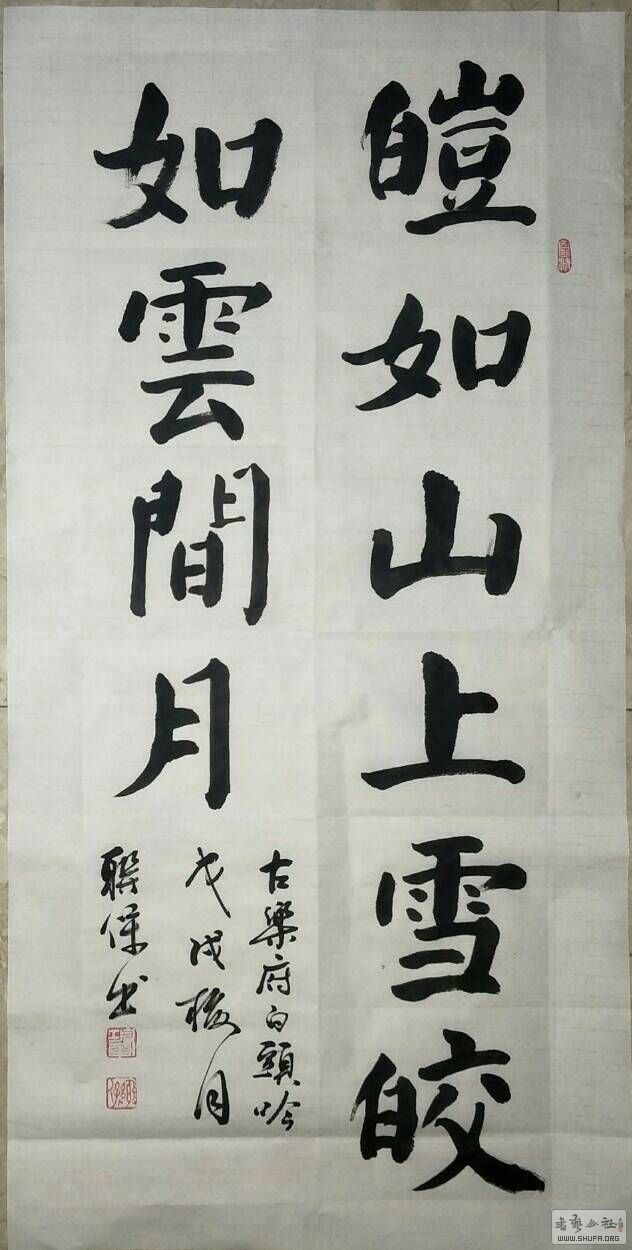 皚如山上雪皎
如雲間月
古樂府白頭吟
戊戌梅月
聯保书
書藝公社
WWW.SHUFA.ORG